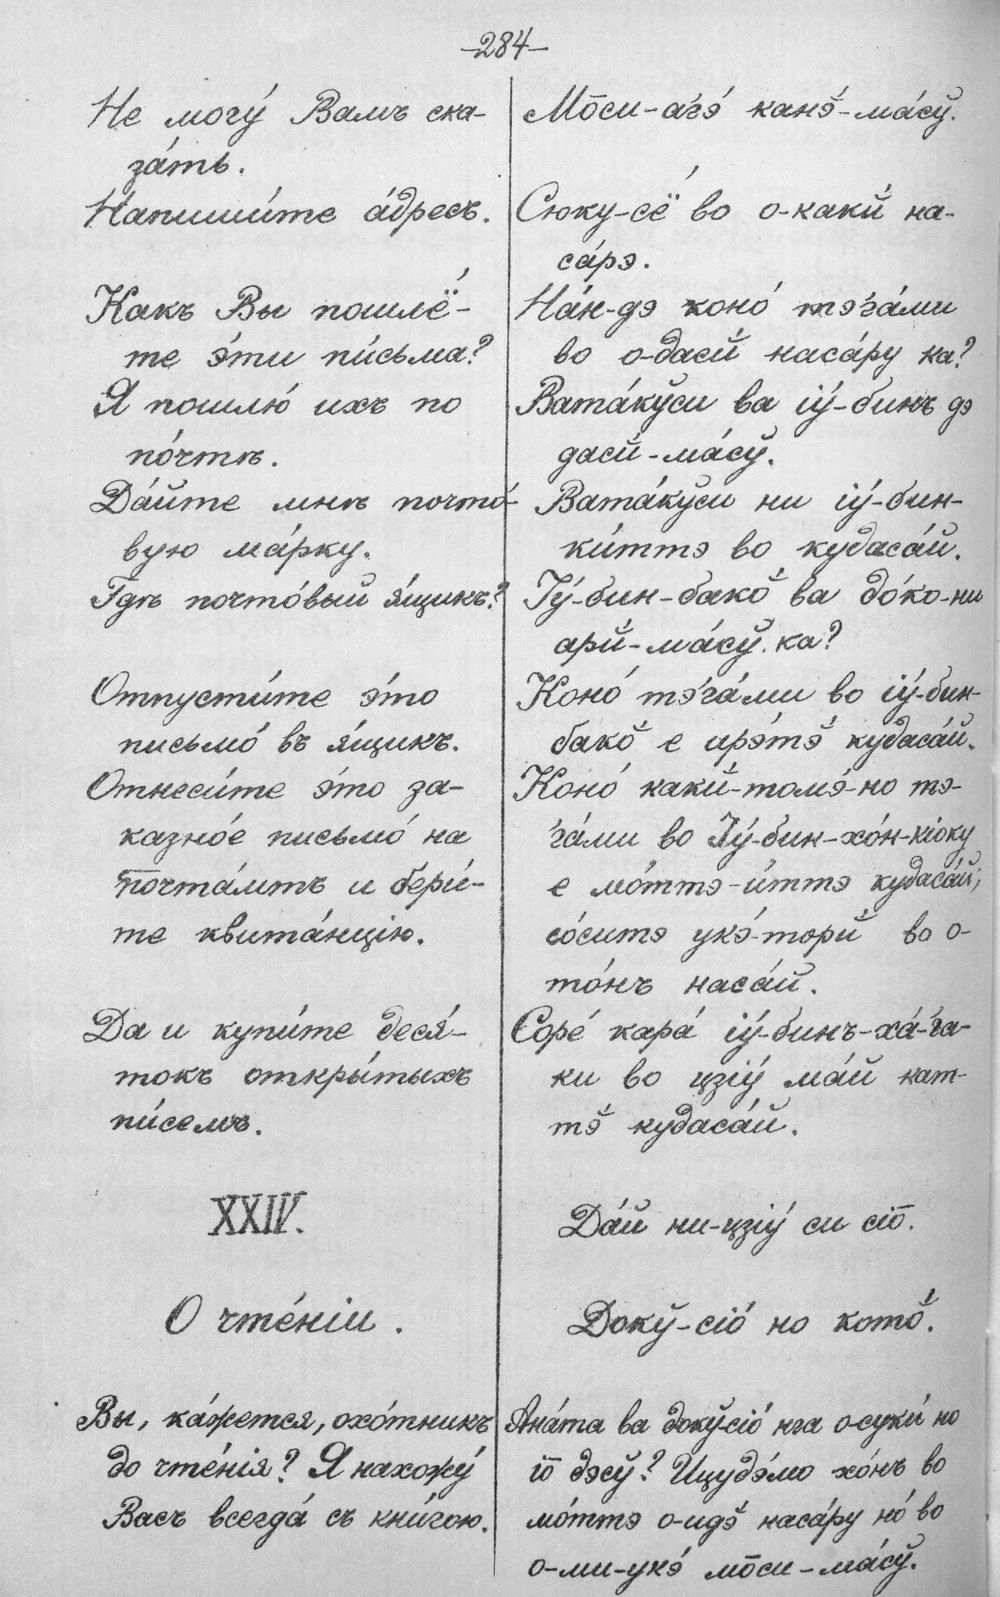 —284—
Не могу́ Вамъ ска-
за́ть.
Напиши́те а́дресъ.
Какъ Вы пошлё́-
те э́ти пи́сьма?
Я пошлю́ ихъ по
по́чтѣ.
Да́йте мнѣ почто́-
вую ма́рку.
Гдѣ почто́вый я́щикъ?
Отпусти́те э́то
письмо́ въ я́щикъ.
Отнеси́те э́то за-
казно́е письмо́ на
почта́мтъ и бери́-
те квита́нцію.
Да и купи́те деся́-
токъ откры́тыхъ
пи́семъ.
XXIV.
О чте́ніи.
Вы, ка́жется, охо́тникъ
до чте́нія? Я нахожу́
Васъ всегда́ съ кни́гою.
Мо̄си-а́гэ́ канэ̆́-ма́сў.
Сюку-сё́ во о-какй на-
са́рэ.
На́н-дэ коно́ тэга́ми
во о-дасй наса́ру ка?
Вата́кўси ва іу́-бинъ дэ
дасй-ма́сў.
Вата́кўси ни іу́-бин-
ки́ттэ во кудаса́й.
Іу́-бин-бако̆́ ва до́ко-ни
арй-ма́сў ка?
Коно́ тэга́ми во іу́-бин-
бако̆́ е ирэ́тэ̆́ кудаса́й.
Коно́ какй-томэ́-но тэ-
га́ми во Іу́-бин-хо́н-кіоку
е мо́ттэ-и́ттэ кудаса́й;
со́ситэ укэ́-торй во о-
то́нъ наса́й.
Соре́ кара́ іу́-бинъ-ха́-га-
ки во цзіу́ ма́й кат-
тэ̆́ кудаса́й.
Да́й ни-цзіу́ си сіо̄.
Докў-сіо́ но кото̆́.
Ана́та ва докўсіо́ нга о-суки́ но
іо̄ дэсў? Ицудэ́мо хо́нъ во
мо́ттэ о-идэ̆́ наса́ру но́ во
о-ми-укэ́ мо̄си-ма́сў.